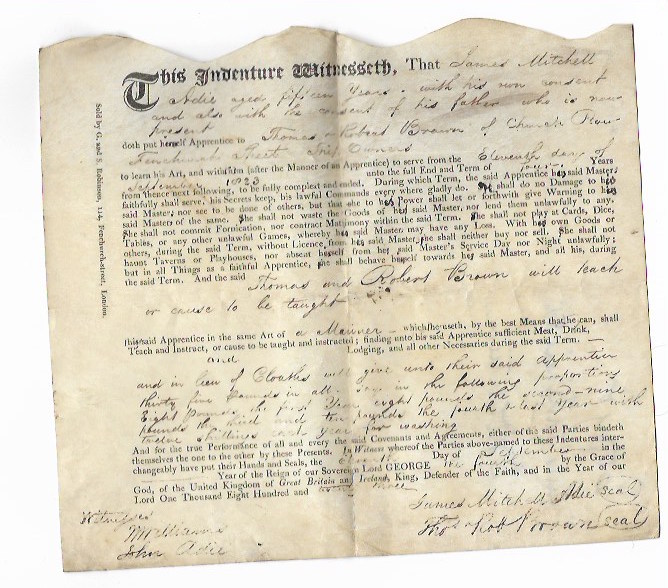 This Indenture Witnesseth, That James Mitchell
Adie aged fifteen Years. with his own consent
and also with the consent of his father who is now
present
doth put herself Apprentice to Thomas & Robert Brown of Church Row
Fenchurch Street Ship Owners
to learn his Art, and with him (after the Manner of an Apprentice) to serve from the Eleventh day of
September 1823 unto the full End and Term of four Years
from thence next following, to be fully compleat and ended. During which Term, the said Apprentice her said Masters
faithfully shall serve, his Secrets keep, his lawful Commands every where gladly do. She shall do no Damage to his
said Masters nor see to be done of others, but that she to her Power shall let or forthwith give Warning to his
said Masters of the same. She shall not waste the Goods of her said Masters, nor lend them unlawfully to any.
She shall not commit Fornication, nor contract Matrimony within the said Term. She shall not play at Cards, Dice,
Tables, or any other unlawful Games, whereby her said Masters may have any Loss. With her own Goods or
others, during the said Term, without Licence from her said Masters she shall neither buy nor sell. She shall not
haunt Taverns or Playhouses, nor absent herself from her said Master's Service Day nor Night unlawfully;
but in all Things as a faithful Apprentice, she shall behave herself towards her said Masters, and all his, during
the said Term. And the said
Thomas and Robert Brown will teach
or cause to be taught
this said Apprentice in the same Art of a Mariner which he useth, by the best Means that he can, shall
Teach and Instruct, or cause to be taught and instructed; finding unto his said Apprentice sufficient Meat, Drink,
and Lodging, and all other Necessaries during the said Term.
and in lieu of Cloaths will give unto their said Apprentice
thirty five Pounds in all. Say in the following proportions
Eight Pounds the first Year eight pounds the second-nine
pounds the third and ten pounds the fourth & last Year with
twelve shillings each Year for washing
And for the true Performance of all and every the said Covenants and Agreements, either of the said Parties bindeth
themselves the one to the other by these Presents. In Witness whereof the Parties above-named to these Indentures inter-
changeably have put their Hands and Seals, the Day of September in the
Year of the Reign of our Sovereign Lord GEORGE the fourth by the Grace of
God, of the United Kingdom of Great Britain and Ireland, King, Defender of the Faith, and in the Year of our
Lord One Thousand Eight Hundred and twenty three
James Mitchell Adie seal
Thos & Robt Brown seal
Witnesses
John Adie
Sold by G. and S. Robinson, 114, Fenchurch-street, London.